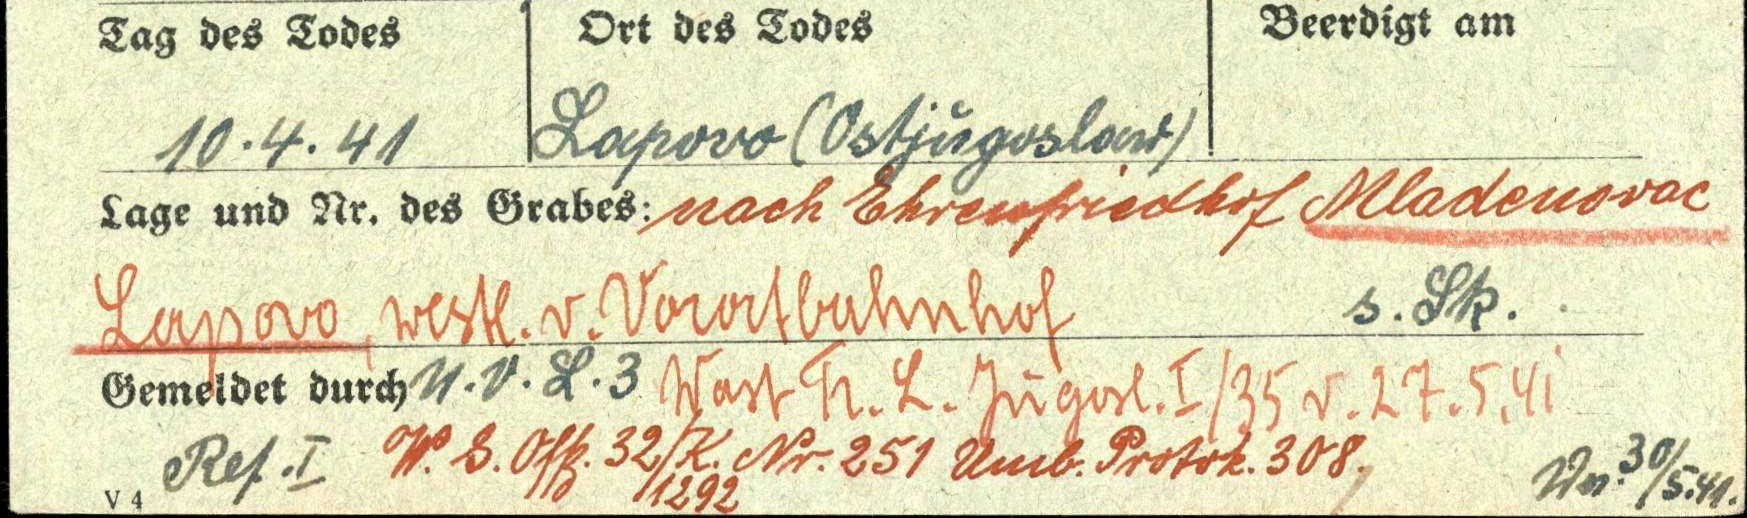 Tag des Todes Ort des Todes Beerdigt am
10.4.41 Lapovo (Ostjugoslaw)
Lage und Nr. des Grabes: nach Ehrenfriedhof Mladenovac
Lapovo, westl. v. Vorortbahnhof s. Sk.
Gemeldet durch N.V.L.3 Wast Tr. L. Jugosl. I/35 v. 27.5.41
Ref. I W. G. Offz. 32/K. Nr. 251 Umb. Protok. 308, 30/5.41.
V 4 1292